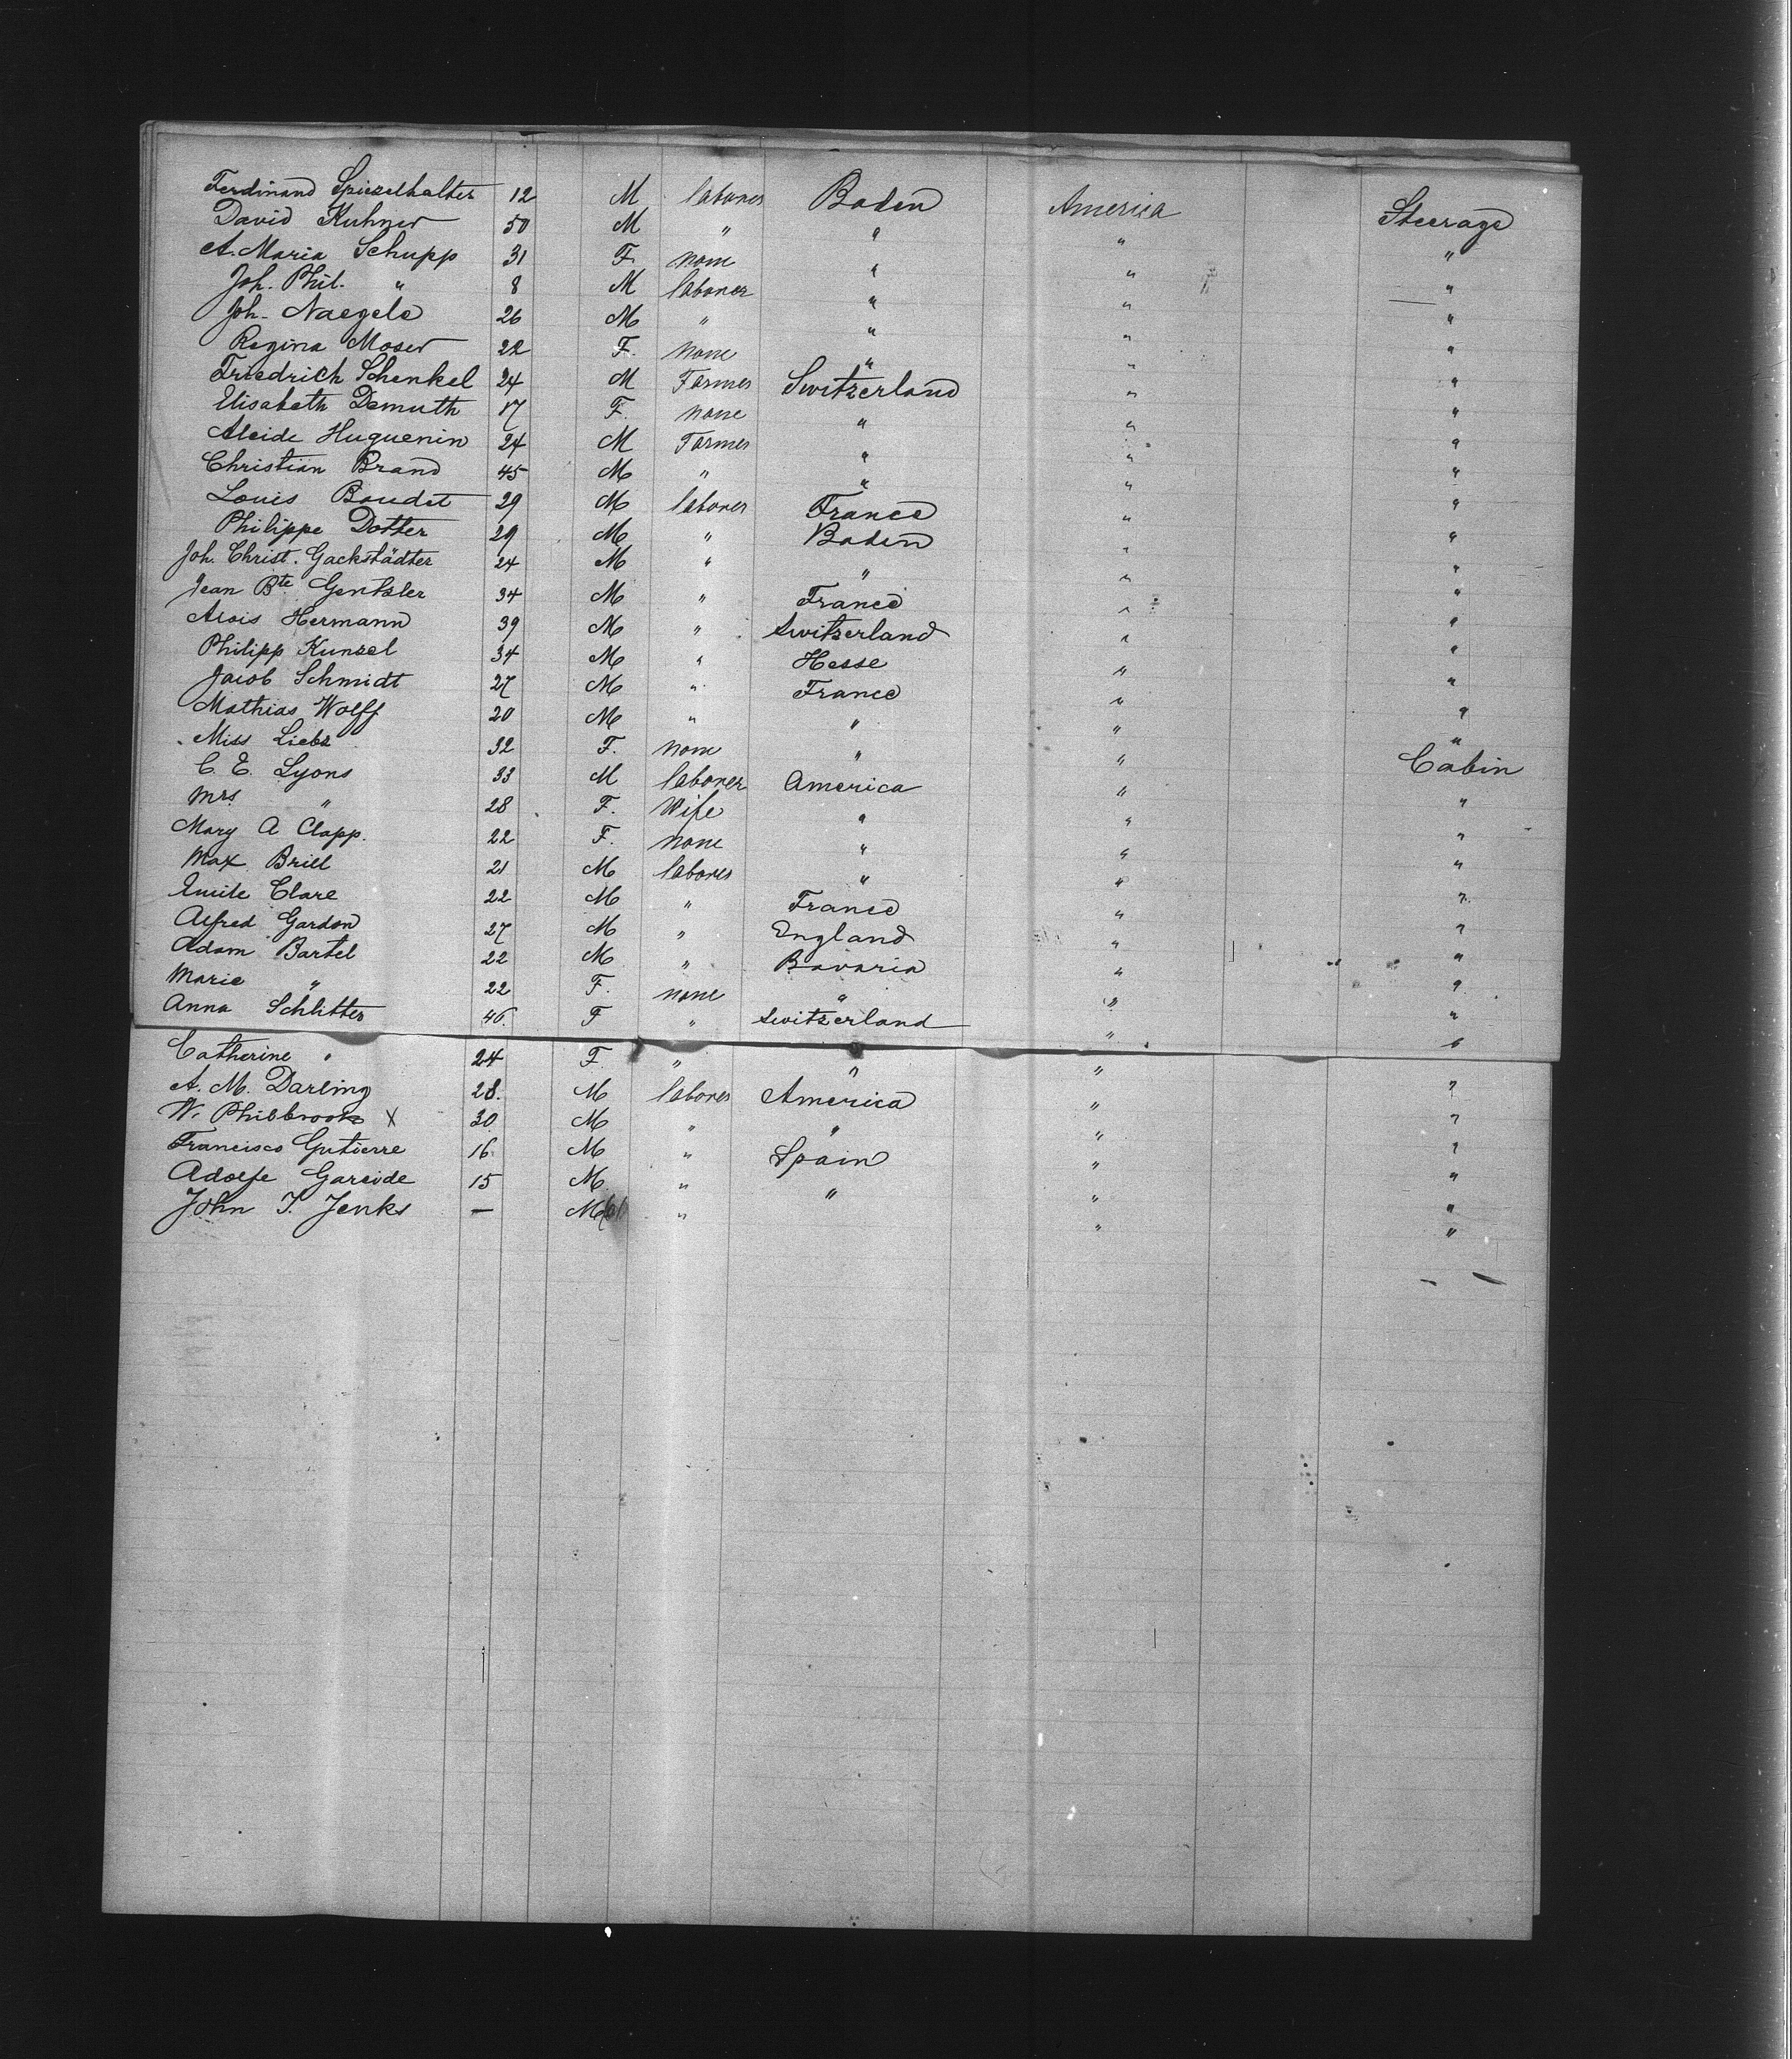 Ferdinand Spiegelhalter 12 M laborer Baden America Steerage
David Kuhner 50 M " " " "
A. Maria Schupp 31 F. none " " "
Joh. Phil. " 8 M laborer " " "
Joh. Naegele 26 M " " " "
Regina Moser 22 F. none " " "
Friedrich Schenkel 24 M Farmer Switzerland " "
Elisabeth Demuth 17 F. none " " "
Alcide Huguenin 24 M Farmer " " "
Christian Brand 45 M " " " "
Louis Boudet 29 M laborer France " "
Philippe Dotter 29 M " Baden " "
Joh. Christ. Gackstädter 24 M " " " "
Jean Bte Gentzler 34 M " France " "
Alois Hermann 39 M " Switzerland " "
Philipp Kunzel 34 M " Hesse " "
Jacob Schmidt 27 M " France " "
Mathias Wolff 20 M " " " "
Miss Liebz 32 F. none " " Cabin
C. E. Lyons 33 M laborer America " "
Mrs " 28 F. Wife " " "
Mary A Clapp. 22 F. none " " "
Max Brill 21 M laborer " " "
Emile Clare 22 M " France " "
Alfred Gardon 27 M " England " "
Adam Bartel 22 M " Bavaria " "
Marie " 22 F. none " " "
Anna Schlitter 46. F " Switzerland " "
Catherine " 24 F. " " " "
A. M. Darling 28. M laborer America " "
W. Philbrook X 30. M " " " "
Francisco Gutierre 16 M " Spain " "
Adolfe Gareide 15 M. " " " "
John T. Jenks — M " " "